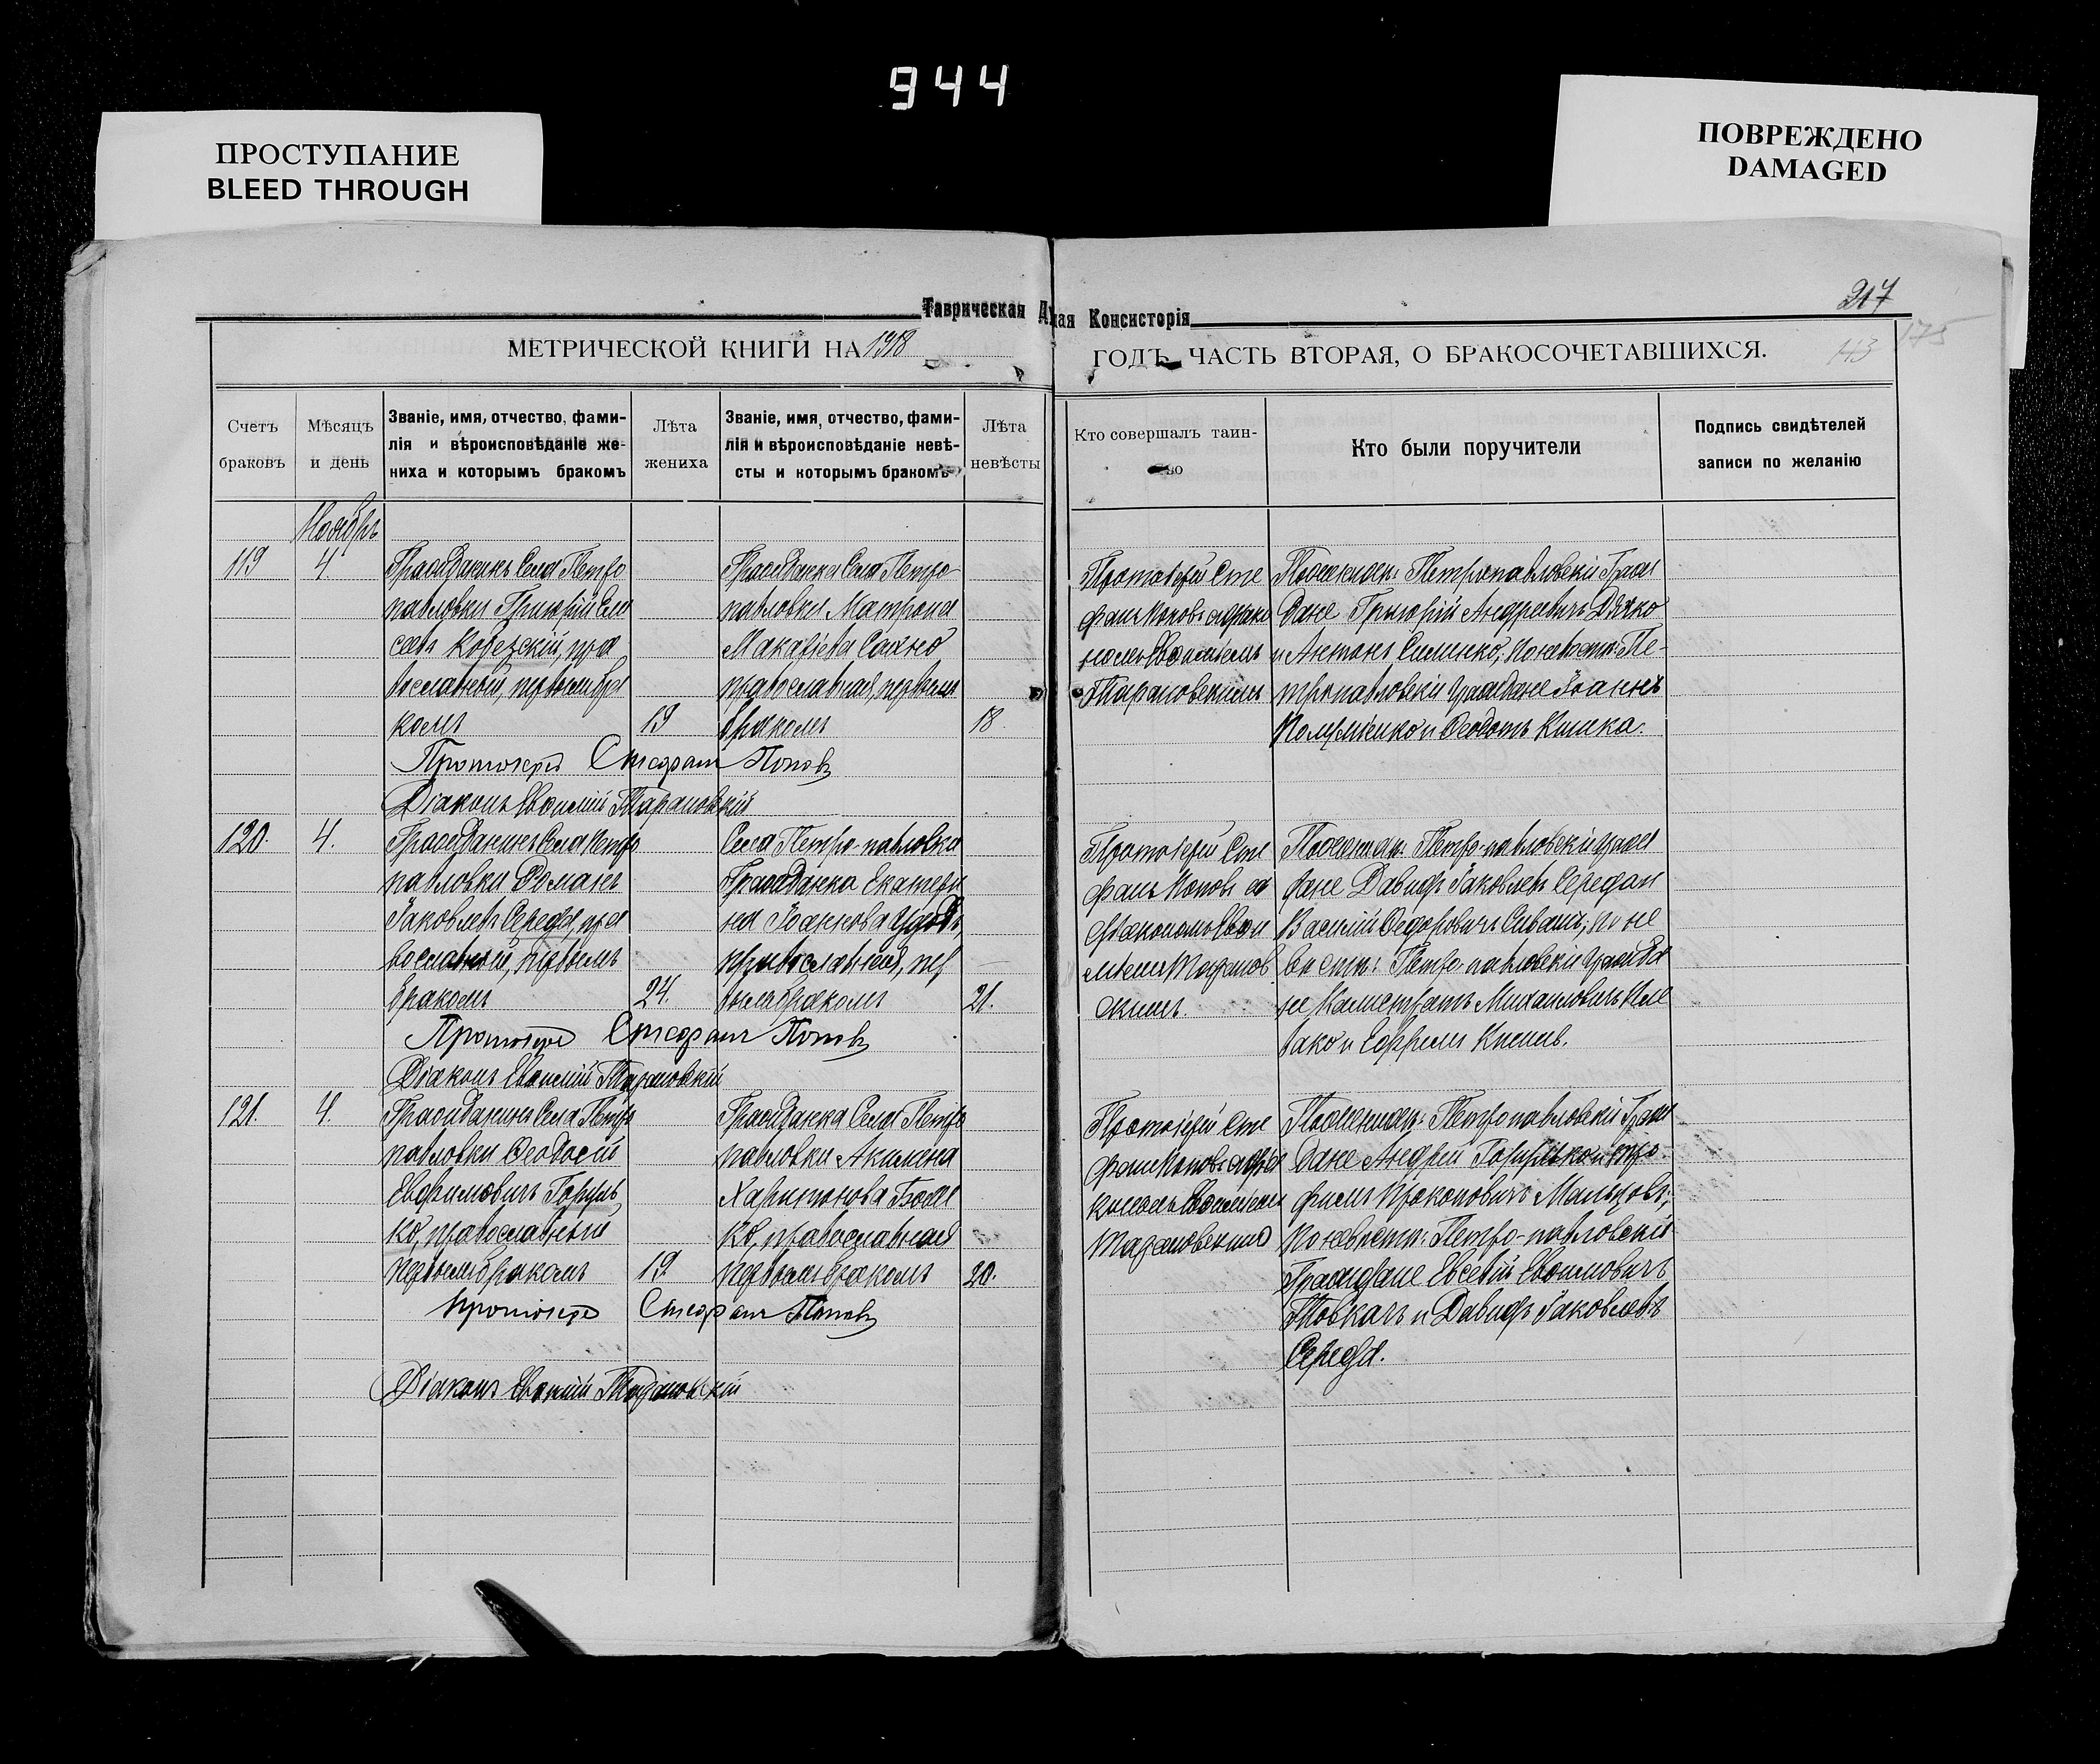 944
ПРОСТУПАНИЕ
BLEED THROUGH
ПОВРЕЖДЕНО
DAMAGED
Таврическая
ная Консисторія
217
175
113
МЕТРИЧЕСКОЙ КНИГИ НА 1918
ГОДЪ, ЧАСТЬ ВТОРАЯ, О БРАКОСОЧЕТАВШИХСЯ.
Счетъ
браковъ
Мѣсяцъ
и день
Званіе, имя, отчество, фами-
лія и вѣроисповѣданіе же-
ниха и которымъ бракомъ
Лѣта
жениха
Званіе, имя, отчество, фами-
лія и вѣроисповѣданіе невѣ-
сты и которымъ бракомъ
Лѣта
невѣсты
Кто совершалъ таин-
Кто были поручители
Подпись свидѣтелей
записи по желанію
Ноябрь
119
4.
Гражданинъ Села Петро
павловки Григорій Ели
сеевъ пра
вославный, первымъ бра
комъ
19
Гражданка Села Петро
павловки Матрона
Макаріева Сахно
православная, первымъ
бракомъ
18.
Протоіерей Сте
фанъ Поповъ съ діако
номъ Евѳиміемъ
Тарановскимъ
По женихѣ: Петропавловскіе Граж
дане Григорій Андреевичъ Дячко
и Антонъ Симченко; по невѣстѣ: Пе-
тропавловскіе граждане Іоаннъ
и Ѳеодотъ Кишка.
Протоіерей Стефанъ Поповъ
Діаконъ Евѳимій Тарановскій
120.
4.
Гражданинъ Села Петро
павловки Романъ
Іаковлевъ Середа, пра
вославный, первымъ
бракомъ
24.
Села Петро-павловки
Гражданка Екатери
на Іоаннова
православная, пер
вымъ бракомъ
21.
Протоіерей Сте
фанъ Поповъ съ
діакономъ Евѳи
міемъ Таранов
скимъ.
По женихѣ: Петро-павловскіе граж
дане Давидъ Іаковлевъ Середа и
Василій Ѳедоровичъ по не
вѣстѣ: Петро-павловскіе гражда
не Калистратъ Михаиловичъ
и Ефремъ
Протоіерей Стефанъ Поповъ
Діаконъ Евѳимій Тарановскій
121.
4.
Гражданинъ Села Петро
павловки Ѳеодосій
Евфимовичъ
ко, православный
первымъ бракомъ
19.
Гражданка Села Петро
павловки Акилина
Харитонова Бой
ко, православная
первымъ бракомъ
20.
Протоіерей Сте
фанъ Поповъ съ діа
кономъ Евѳиміемъ
Тарановскимъ
По женихѣ: Петропавловскіе Граж
дане Андрей и Тро
фимъ Прокоповичъ Мальцовъ;
По невѣстѣ: Петро-павловскіе
Граждане Евсевій Евѳимовичъ
Товкачъ и Давидъ Іаковлевъ
Середа.
Протоіерей Стефанъ Поповъ
Діаконъ Евѳимій Тарановскій